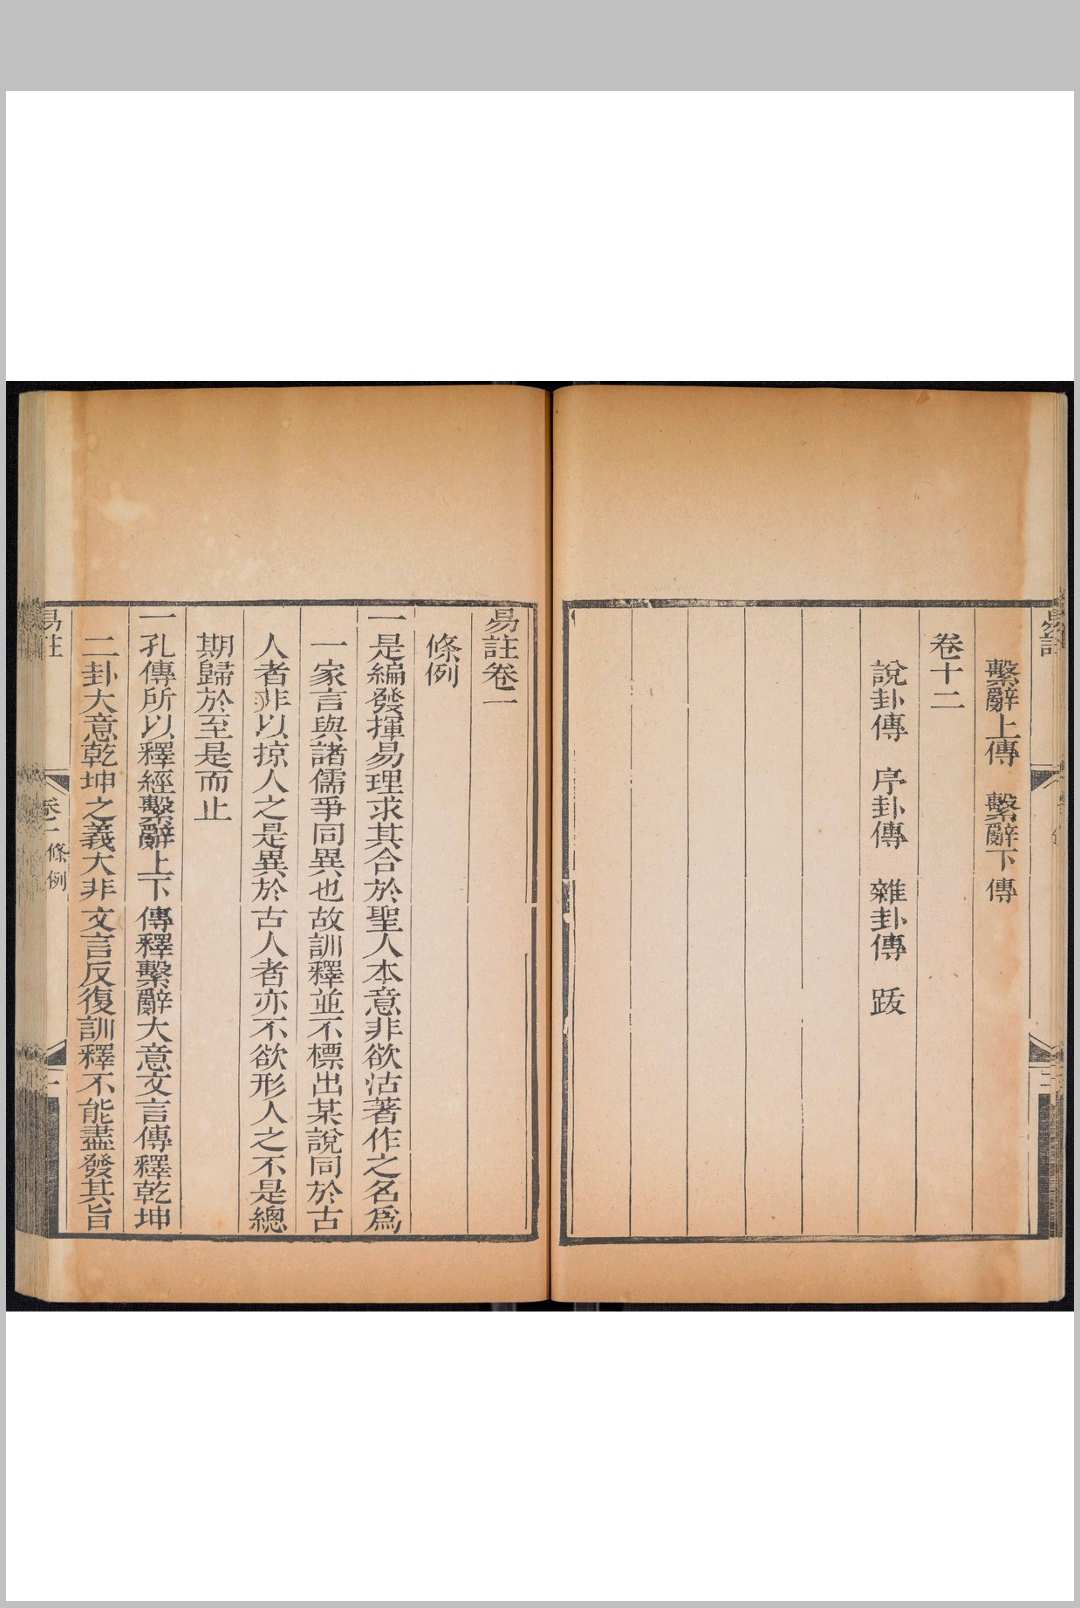 繫辭上傳　繫辭下傳
卷十二
說卦傳　序卦傳　雜卦傳　跋
易註卷一
條例
一是編發揮易理求其合於聖人本意非欲沽著作之名爲
一家言與諸儒爭同異也故訓釋並不標出某說同於古
人者非以掠人之是異於古人者亦不欲形人之不是總
期歸於至是而止
一孔傳所以釋經繫辭上下傳釋繫辭大意文言傳釋乾坤
二卦大意乾坤之義大非文言反復訓釋不能盡發其旨
易註
卷一條例
一